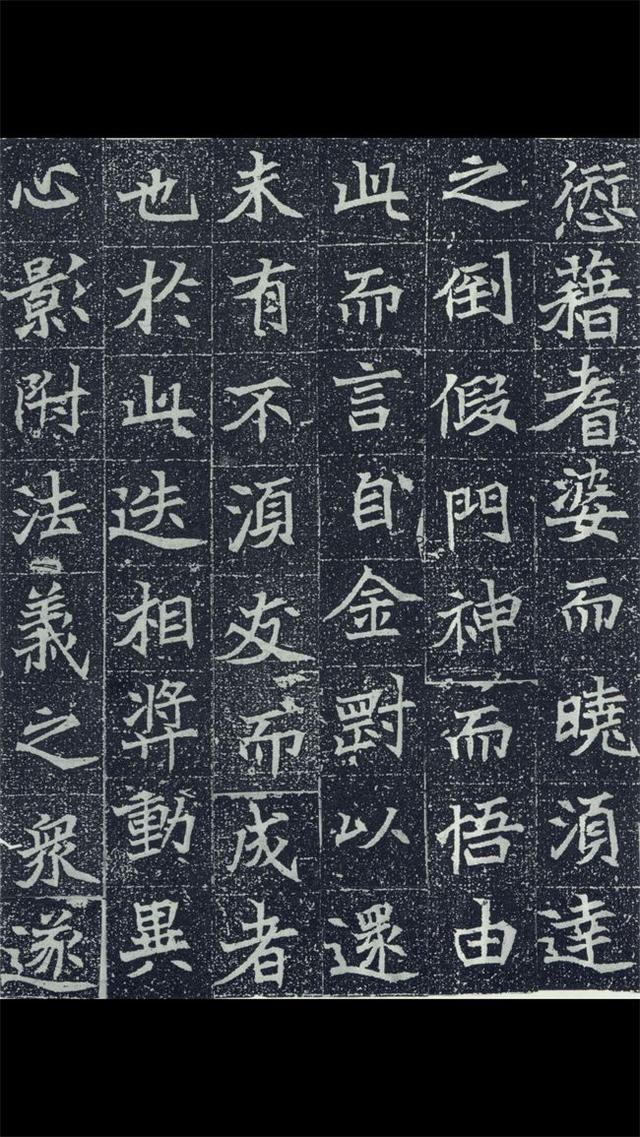 愆藉耆婆而曉須達
之倒假門神而悟由
此而言自金剛以還
未有不須友而成者
也於此迭相獎動異
心影附法義之眾遂